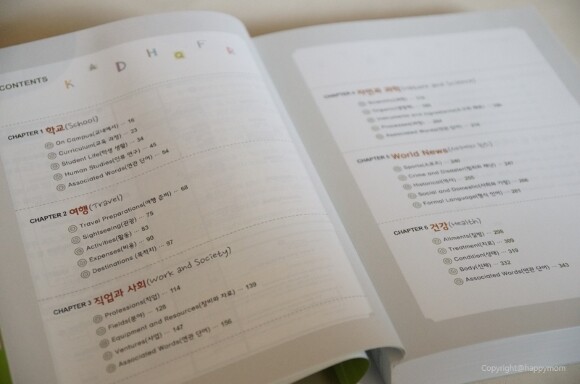 CONTENTS
K A D H Q F R
CHAPTER 1 학교(School)
On Campus(교내에서) ··· 16
Curriculum(교육 과정) ··· 23
Student Life(학생 생활) ··· 34
Human Studies(인류 연구) ··· 45
Associated Words(연관 단어) ··· 54
CHAPTER 2 여행(Travel)
Travel Preparations(여행 준비) ··· 68
Sightseeing(관광) ··· 75
Activities(활동) ··· 83
Expenses(비용) ··· 90
Destinations (목적지) ··· 97
CHAPTER 3 직업과 사회(Work and Society)
Professions(직업) ··· 114
Fields(분야) ··· 126
Equipment and Resources(장비와 자료) ··· 139
Ventures(사업) ··· 147
Associated Words(연관 단어) ··· 156
CHAPTER 4 자연과 과학(Nature and Science)
Associated Words(연관 단어)
CHAPTER 5 World News
Sports(스포츠)
Crime and Disaster(범죄와 재난)
Historical(역사)
Social and Domestic
Formal Language(형식 언어) ··· 281
CHAPTER 6 건강(Health)
Ailments(질병) ··· 298
Treatment(치료) ··· 309
Condition(상태) ··· 319
Body(신체) ··· 332
Associated Words(연관 단어) ··· 343
Copyright@happymom